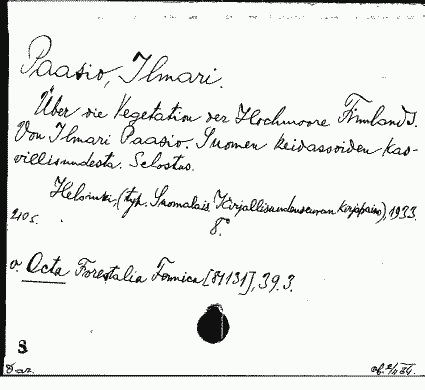 Paasio, Ilmari.
Über die Vegetation der Hochmoore Finnlands.
Von Ilmari Paasio. Suomen keidassoiden kas-
villisuudesta. Selostus.
Helsinki, (typ. Suomalais. Kirjallisuudenseuran kirjapaino), 1933.
210 s. 8°
v. Acta Forestalia Fennica [81131], 39.3.
S